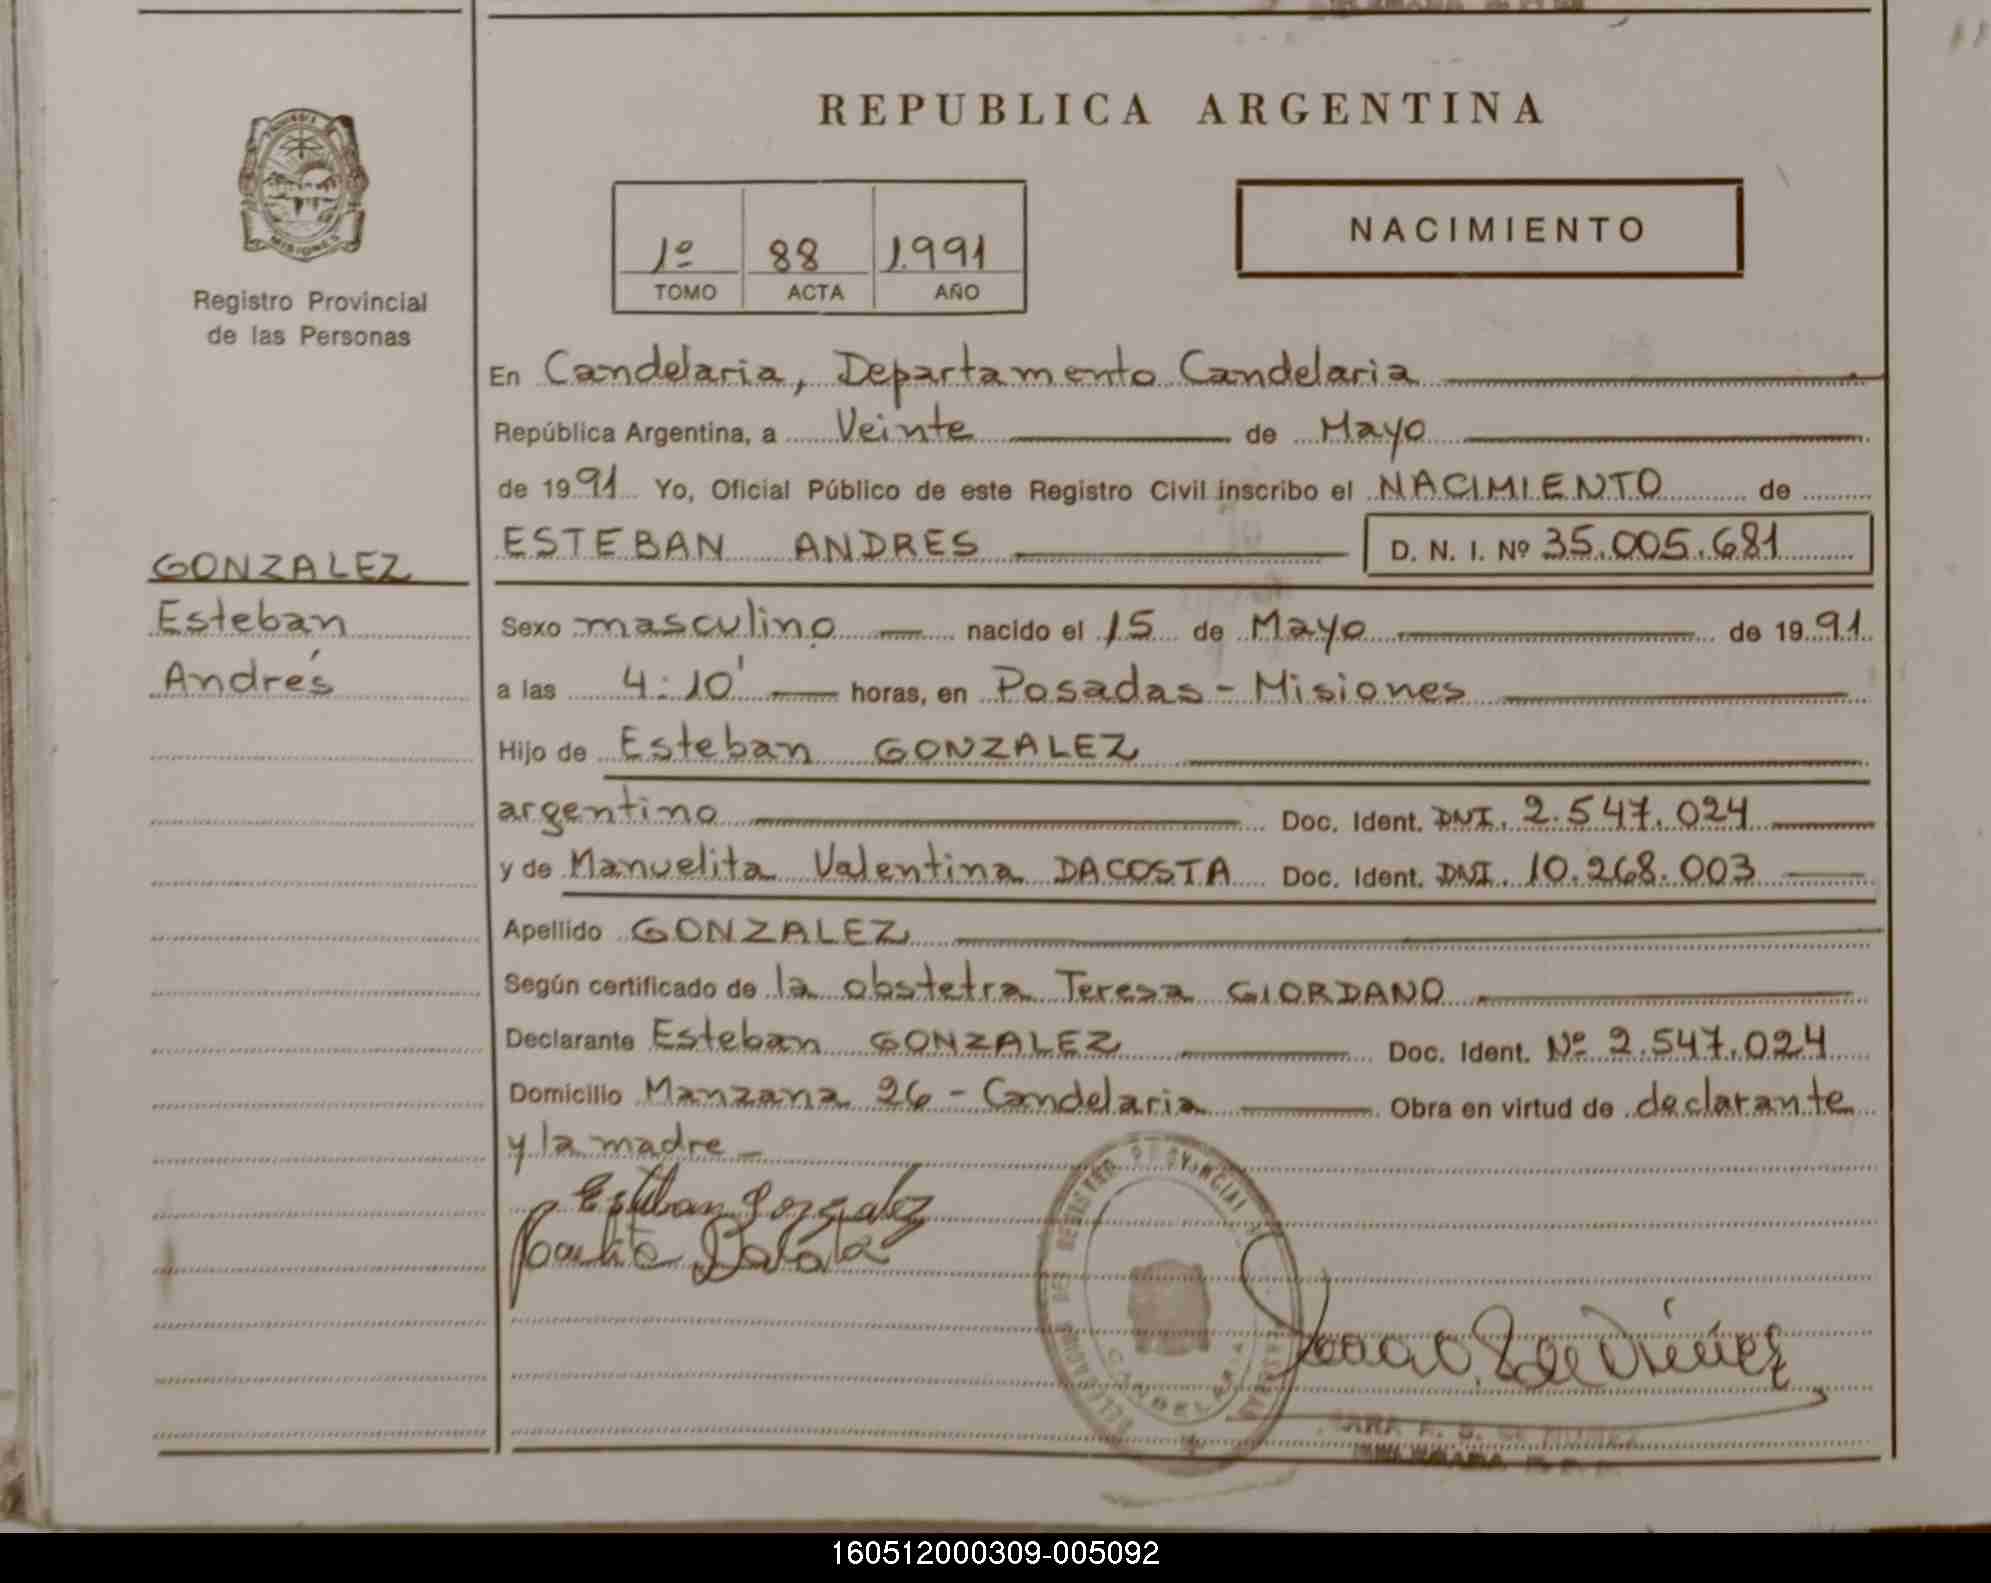 REPUBLICA ARGENTINA
MISIONES
Registro Provincial
de las Personas
1º 88 1.991
TOMO ACTA AÑO
NACIMIENTO
En Candelaria, Departamento Candelaria
República Argentina, a Veinte de Mayo
de 1991 Yo, Oficial Público de este Registro Civil inscribo el NACIMIENTO de
ESTEBAN ANDRES D. N. I. Nº 35.005.681
GONZALEZ
Esteban
Andrés
Sexo masculino nacido el 15 de Mayo de 1991
a las 4:10' horas, en Posadas - Misiones
Hijo de Esteban GONZALEZ
argentino Doc. Ident. DNI. 2.547.024
y de Manuelita Valentina DACOSTA Doc. Ident. DNI. 10.268.003
Apellido GONZALEZ
Según certificado de la obstetra Teresa GIORDANO
Declarante Esteban GONZALEZ Doc. Ident. Nº 2.547.024
Domicilio Manzana 26 - Candelaria Obra en virtud de declarante
y la madre
Esteban Gonzalez
REGISTRO PROVINCIAL
CANDELARIA
160512000309-005092